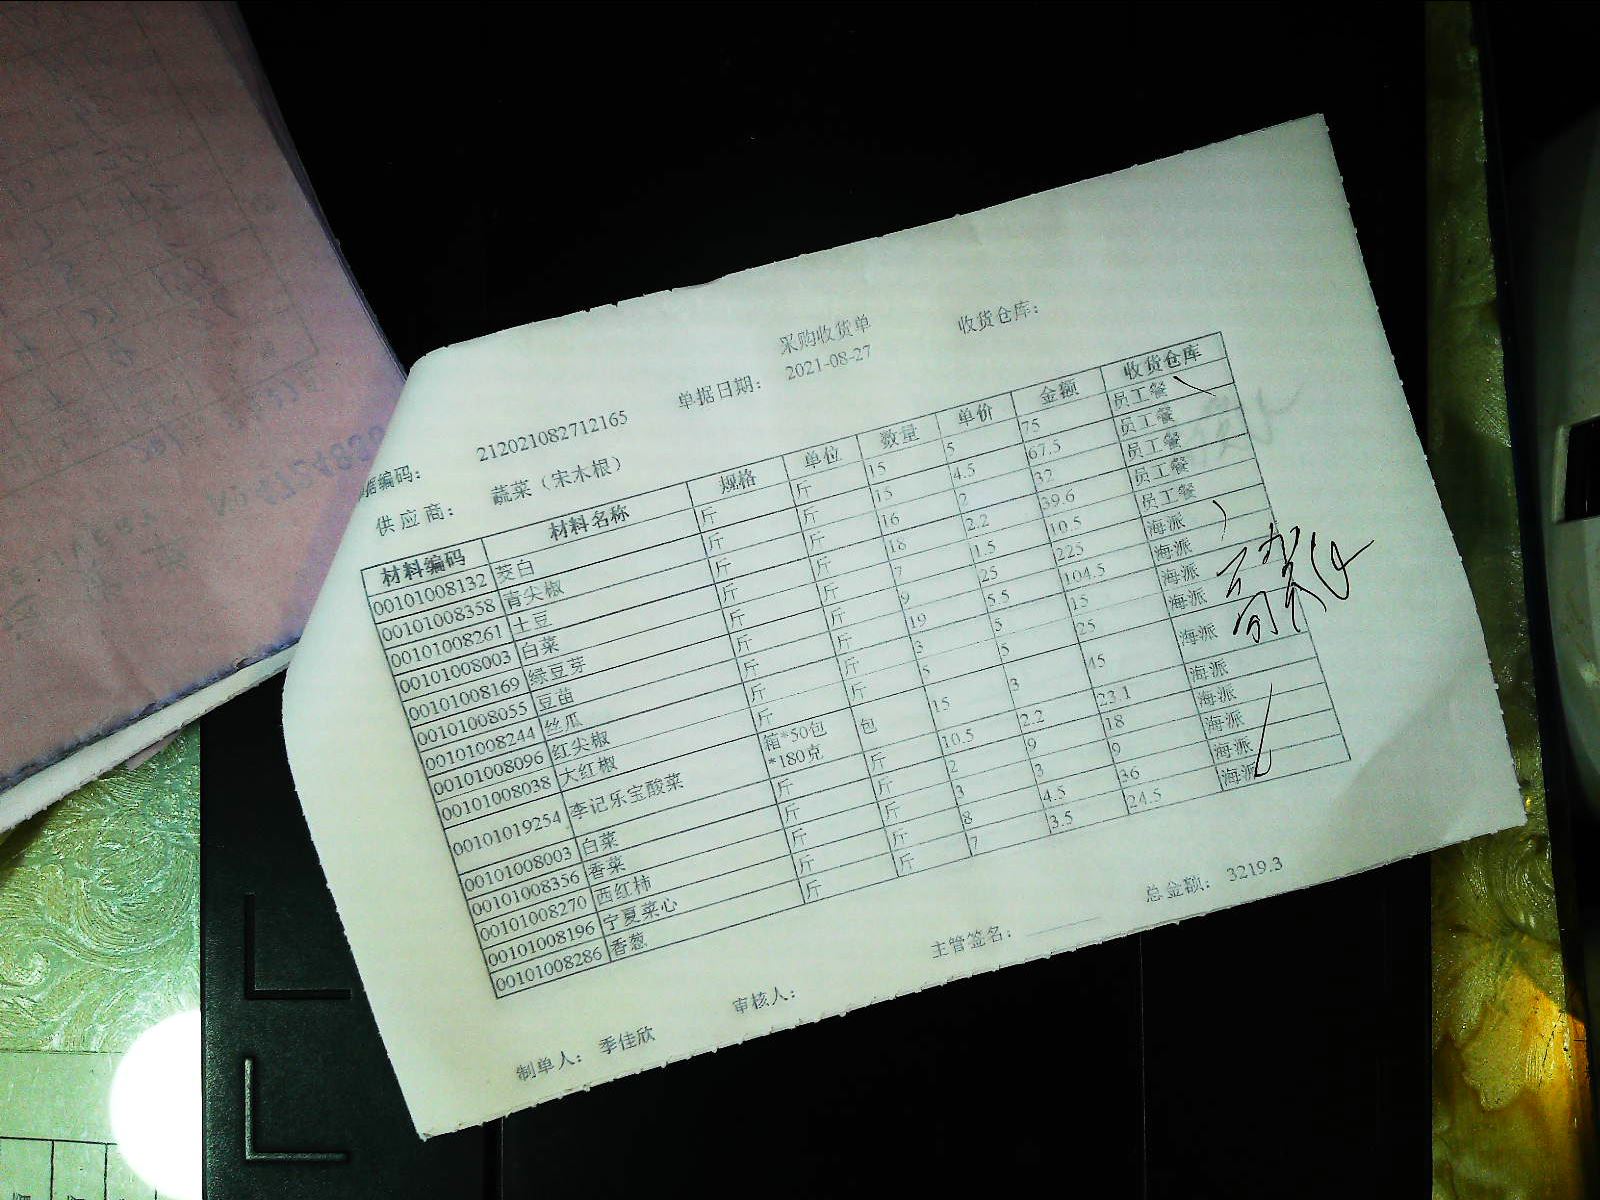 采购收货单
收货仓库：
据编码： 212021082712165 单据日期： 2021-08-27
供应商： 蔬菜（宋木根）
材料编码 材料名称 规格 单位 数量 单价 金额 收货仓库
00101008132 茭白 斤 斤 15 5 75 员工餐
00101008358 青尖椒 斤 斤 15 4.5 67.5 员工餐
00101008261 土豆 斤 斤 16 2 32 员工餐
00101008003 白菜 斤 斤 18 2.2 39.6 员工餐
00101008169 绿豆芽 斤 斤 7 1.5 10.5 员工餐
00101008055 豆苗 斤 斤 9 25 225 海派
00101008244 丝瓜 斤 斤 19 5.5 104.5 海派
00101008096 红尖椒 斤 斤 3 5 15 海派
00101008038 大红椒 斤 斤 5 5 25 海派
00101019254 李记乐宝酸菜 箱*50包*180克 包 15 3 45 海派
00101008003 白菜 斤 斤 10.5 2.2 23.1 海派
00101008356 香菜 斤 斤 2 9 18 海派
00101008270 西红柿 斤 斤 3 3 9 海派
00101008196 宁夏菜心 斤 斤 8 4.5 36 海派
00101008286 香葱 斤 斤 7 3.5 24.5 海派
制单人： 季佳欣 审核人： 主管签名： 总金额： 3219.3